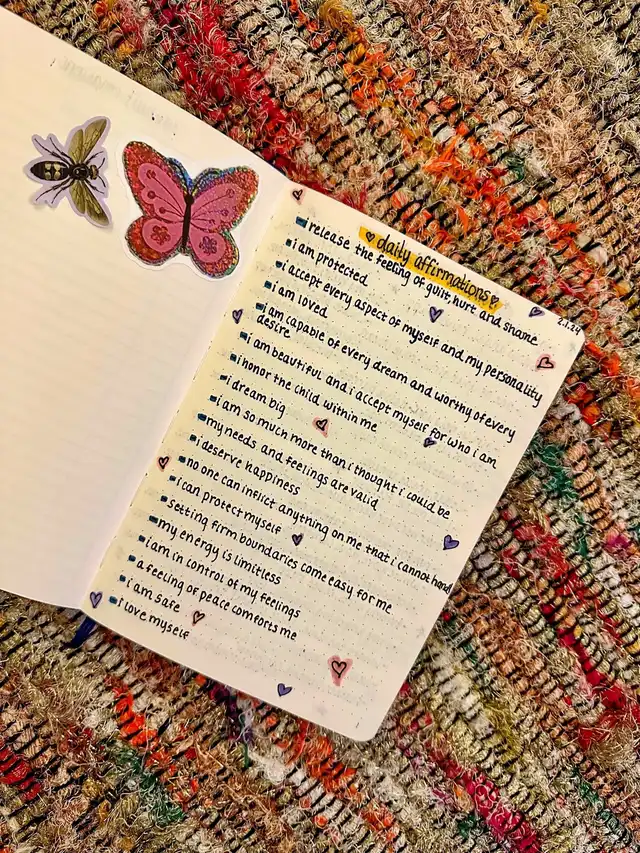 daily affirmations
2.1.24
i release the feeling of guilt, hurt and shame
i am protected
i accept every aspect of myself and my personality
i am loved
i am capable of every dream and worthy of every
desire
i am beautiful and i accept myself for who i am
i honor the child within me
i dream big
i am so much more than i thought i could be
my needs and feelings are valid
i deserve happiness
no one can inflict anything on me that i cannot
i can protect myself
setting firm boundaries come easy for me
my energy is limitless
i am in control of my feelings
a feeling of peace comforts me
i am safe
i love myself